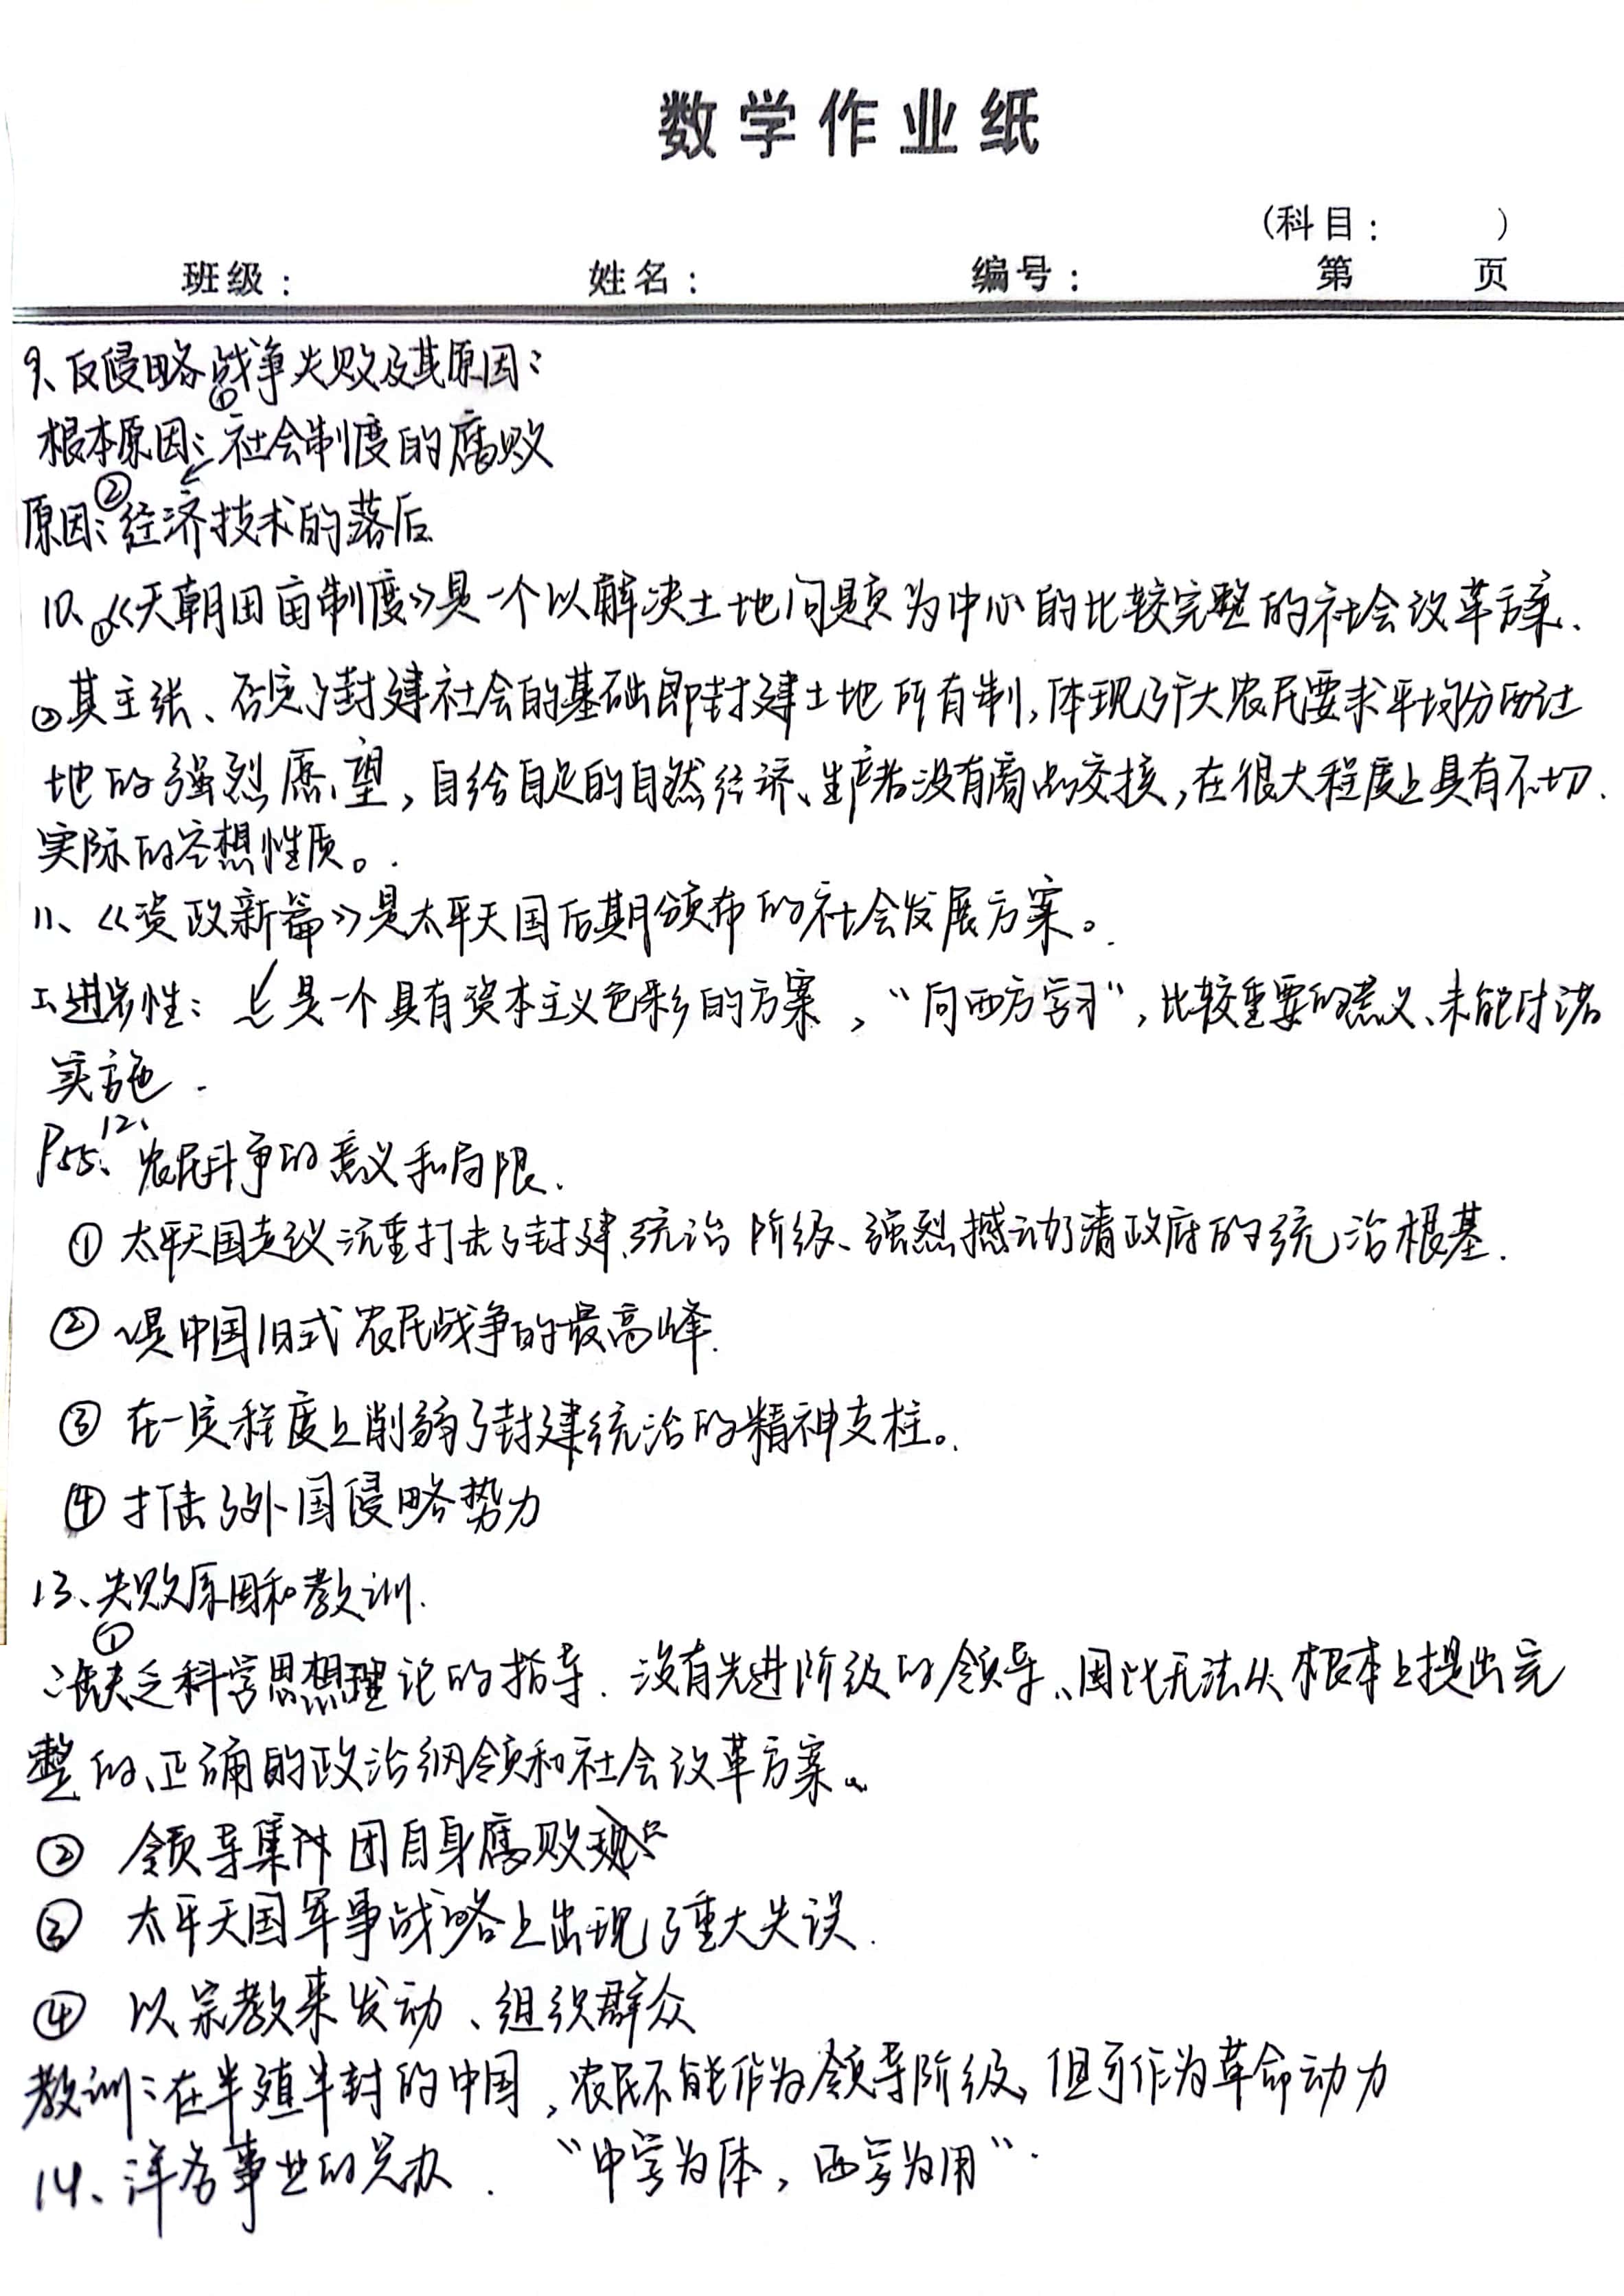 数学作业纸
(科目: )
班级: 姓名: 编号: 第 页
9、反侵略战争失败及其原因:
根本原因:①社会制度的腐败
原因:②经济技术的落后
10、①《天朝田亩制度》是一个以解决土地问题为中心的比较完整的社会改革方案.
②其主张、否定了封建社会的基础即封建土地所有制,体现了广大农民要求平均分配土
地的强烈愿望,自给自足的自然经济、生产者没有商品交换,在很大程度上具有不切
实际的空想性质。
11、《资政新篇》是太平天国后期颁布的社会发展方案。
进步性: 是一个具有资本主义色彩的方案,“向西方学习”,比较重要的意义、未能付诸
实施.
P55、12、农民斗争的意义和局限.
① 太平天国起义沉重打击了封建统治阶级、强烈撼动了清政府的统治根基.
② 是中国旧式农民战争的最高峰.
③ 在一定程度上削弱了封建统治的精神支柱。
④ 打击了外国侵略势力
13、失败原因和教训.
①缺乏科学思想理论的指导.没有先进阶级的领导、因此无法从根本上提出完
整的、正确的政治纲领和社会改革方案。
② 领导集团自身腐败
③ 太平天国军事战略上出现了重大失误.
④ 以宗教来发动、组织群众
教训:在半殖半封的中国,农民不能作为领导阶级,但可作为革命动力
14、洋务事业的兴办. “中学为体,西学为用”.